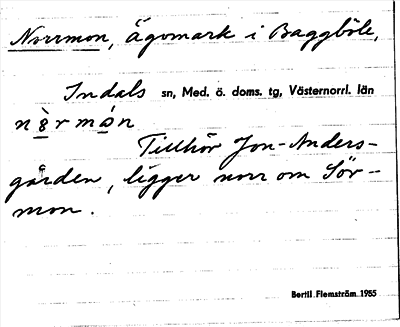 Norrmon, ägomark i Baggböle,
Indals sn, Med. ö. doms. tg, Västernorrl. län
nè̱rmó̱n
Tillhör Jon-Anders-
gården, ligger norr om Sör-
mon.
Bertil Flemström 1955